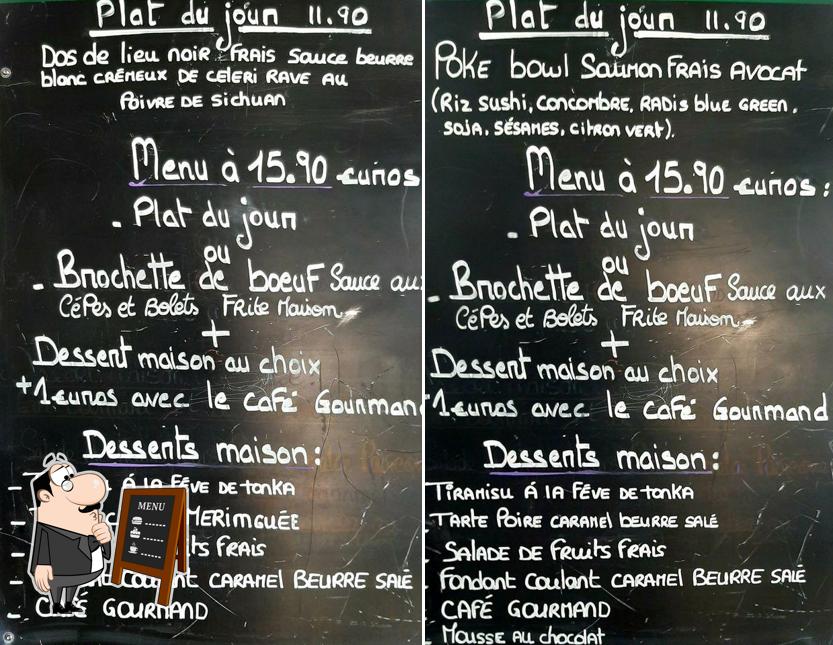 Plat du jour 11.90
Dos de lieu noir FRAIS Sauce beurre
blanc CRÉMEUX DE CELERI RAVE AU
POIVRE DE SICHUAN
Menu à 15.90 euros
. Plat du jour
ou
- Brochette de boeuf Sauce aux
Cépes et Bolets Frite Maison
+
Dessert maison au choix
+1 euros avec le café Gourmand
Desserts maison:
- À LA FÈVE DE tonka
- MERINGUÉE
- ts FRAIS
- Coulant CARAMEL BEURRE SALÉ
- CAFÉ GOURMAND
MENU
Plat du jour 11.90
POKE bowl Saumon FRAIS AVOCAT
(Riz sushi, concombre, RADIS blue GREEN,
SOJA, SÉSAMES, citron vert).
Menu à 15.90 euros:
. Plat du jour
ou
- Brochette de boeuf Sauce aux
Cépes et Bolets Frite Maison
+
Dessert maison au choix
1 euros avec le café Gourmand
Desserts maison:
TIRAMISU À LA FÈVE DE tonka
- TARTE POIRE CARAMEL beurre SALÉ
SALADE DE FRUITS FRAIS
- Fondant Coulant CARAMEL BEURRE SALÉ
CAFÉ GOURMAND
- Mousse AU chocolat